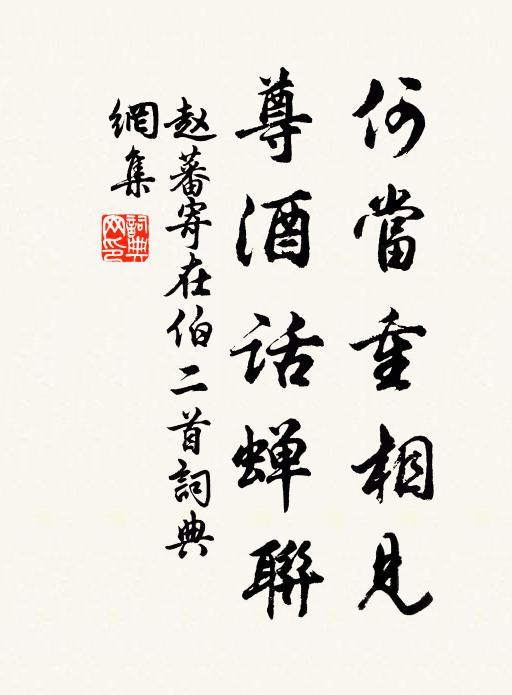 何當重相見
尊酒話蝉聯
赵蕃寄在伯二首詞典
網集
詞典
网印